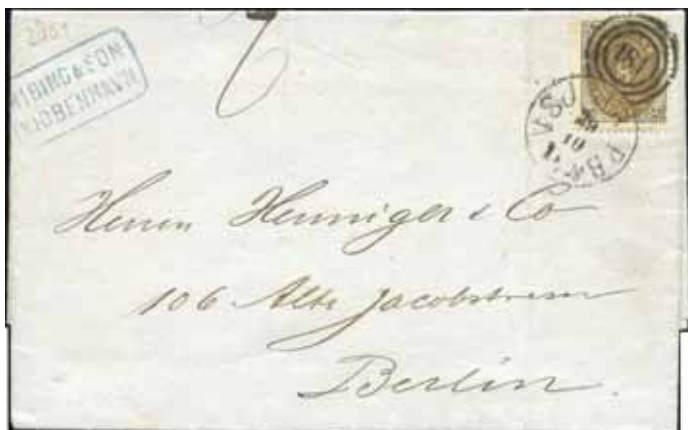 2951
& SON
KJØBENHAVN
181
29
10
Herren Henniger & Co
106 Alte Jacobstrasse
Berlin.